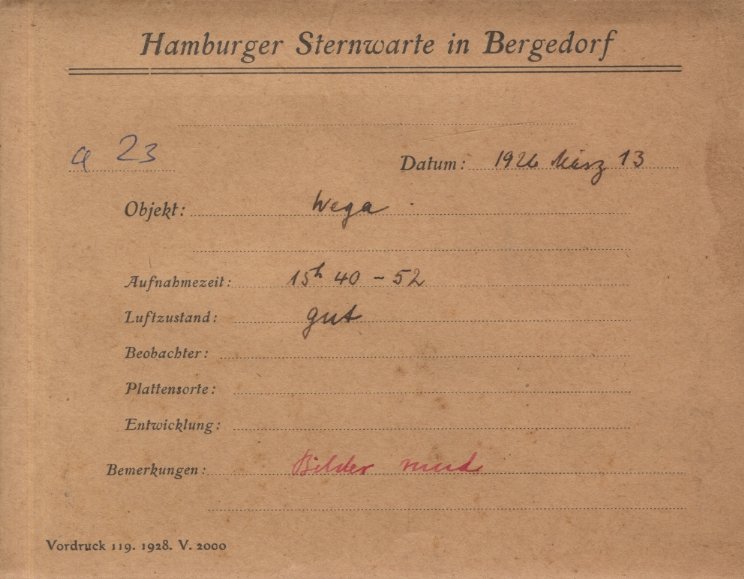 Hamburger Sternwarte in Bergedorf
a 23
Datum: 1926 März 13
Objekt: Wega
Aufnahmezeit: 15h 40 - 52
Luftzustand: gut
Beobachter:
Plattensorte:
Entwicklung:
Bemerkungen: Bilder rund
Vordruck 119. 1928. V. 2000